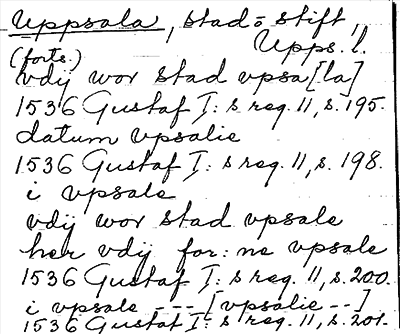 Uppsala, stad = stift,
(forts.) Upps. l.
vdij wor stad vpsa[la]
1536 Gustaf I: s reg. 11, s. 195.
datum vpsalie
1536 Gustaf I: s reg. 11, s. 198.
i vpsale
vdij wor stad vpsale
her vdij for: ne vpsale
1536 Gustaf I: s reg. 11, s. 200.
i vpsale --- [vpsalie --]
1536 Gustaf I: s reg. 11, s. 201.